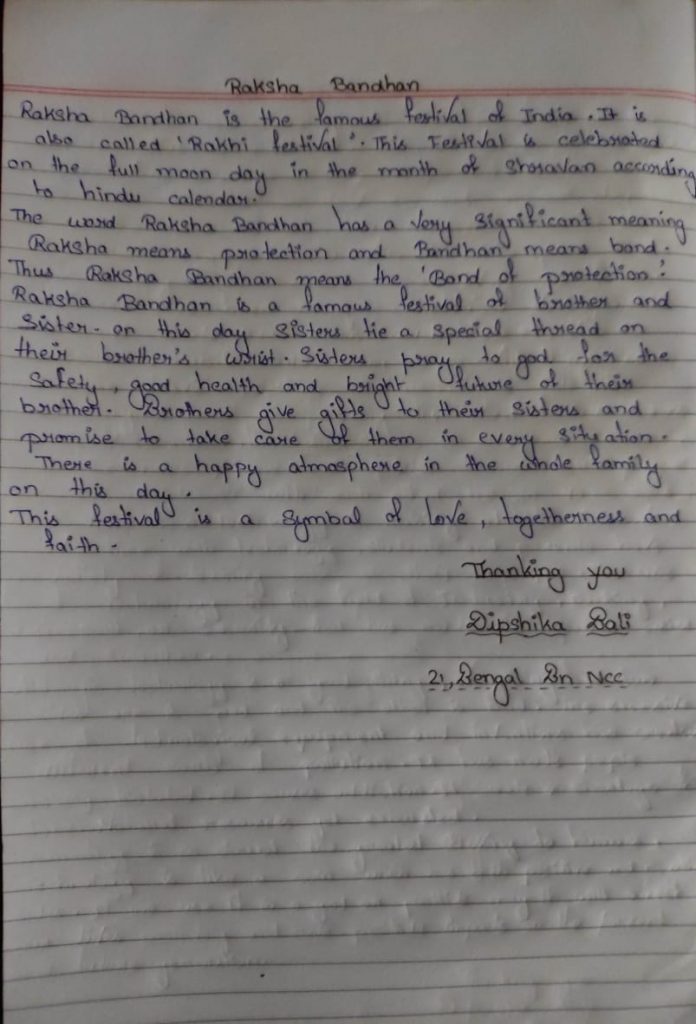 Raksha Bandhan
Raksha Bandhan is the famous festival of India. It is
also called 'Rakhi festival'. This Festival is celebrated
on the full moon day in the month of Shravan according
to hindu calendar.
The word Raksha Bandhan has a very significant meaning
Raksha means protection and Bandhan means band.
Thus Raksha Bandhan means the 'Band of protection'.
Raksha Bandhan is a famous festival of brother and
Sister. on this day sisters tie a special thread on
their brother's wrist. Sisters pray to god for the
Safety, good health and bright future of their
brother. Brothers give gifts to their sisters and
promise to take care of them in every situation.
There is a happy atmosphere in the whole family
on this day.
This festival is a symbol of love, togetherness and
faith.
Thanking you
Dipshika Bali
21, Bengal Bn NCC